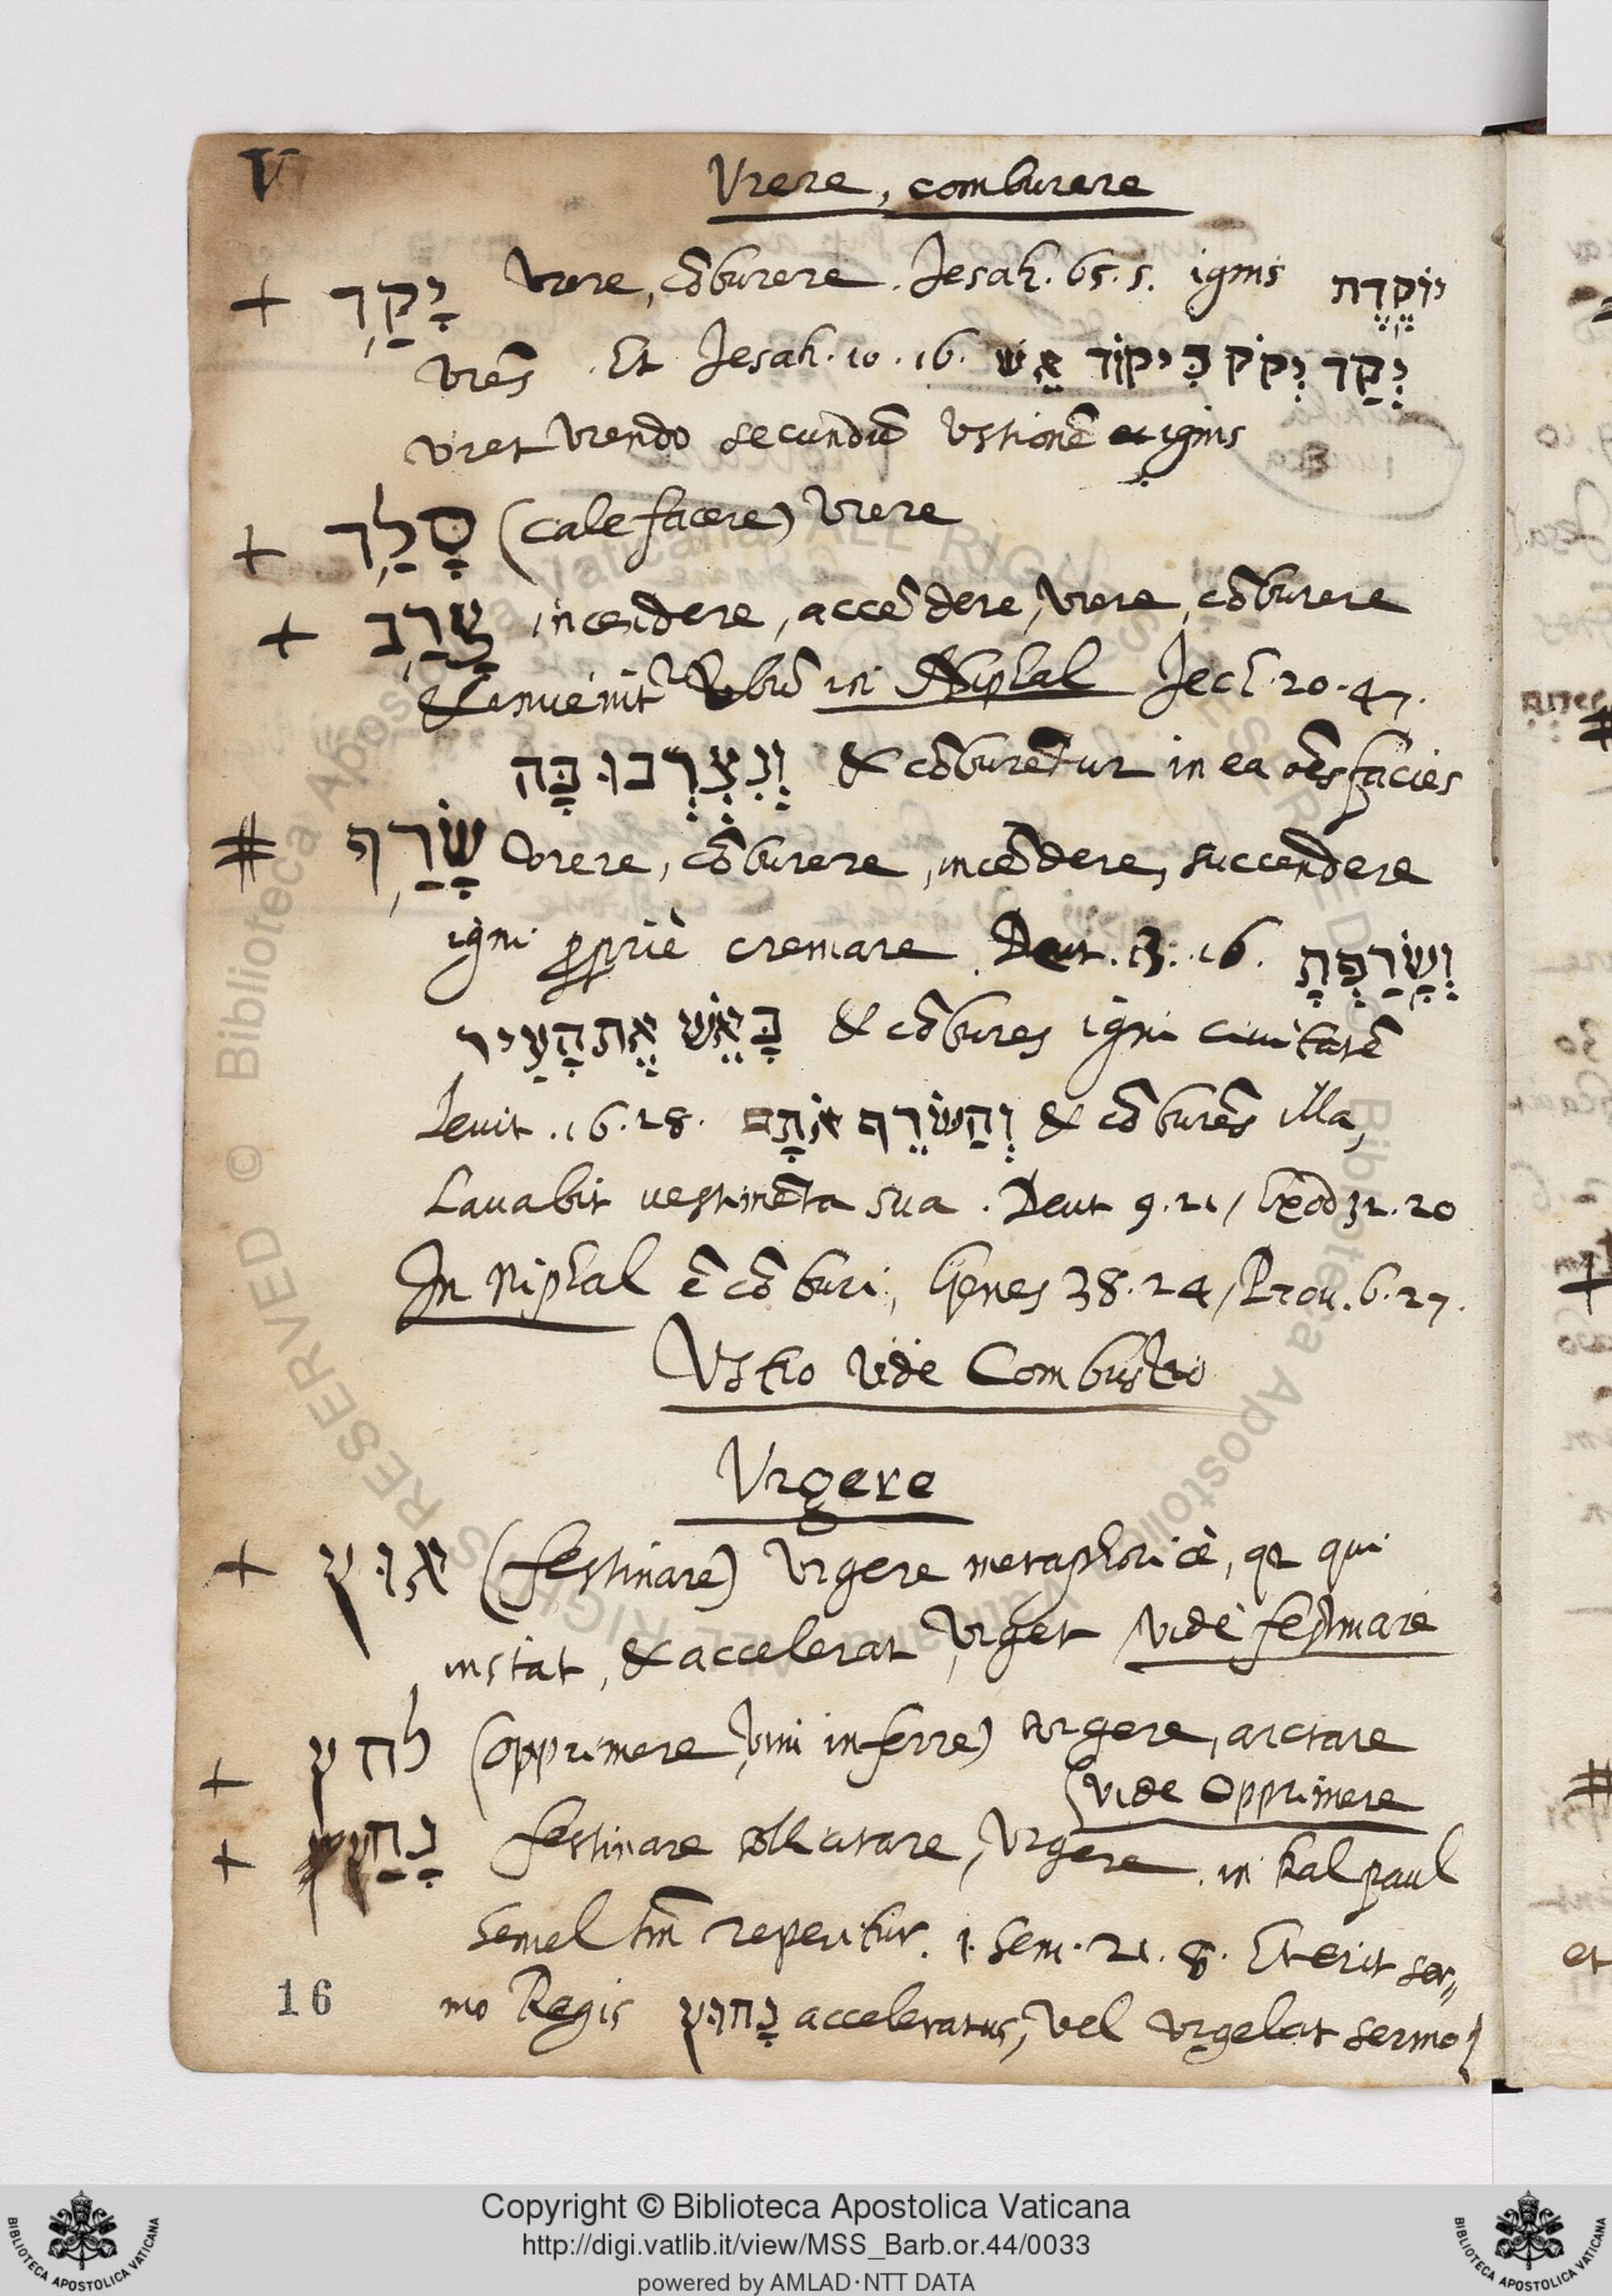 V
Vrere, comburere
+ יָקַד Vrere, cõburere. Jesah. 65. 5. ignis יוֹקֶדֶת
vrẽs. Et Jesah. 10. 16. יְקַד יְקֹד כִּיקוֹד אֵשׁ
vret vrendo secundũ vstionẽ ignis
+ סָלַד (calefacere) vrere
+ צָרַב incendere, accẽdere, vrere, cõburere
& inuenit bũ in Niphal Jech. 20. 47.
וְנִצְרְבוּ בָּהּ & cõburẽtur in ea õẽs facies
# שָׂרַף vrere, cõburere, incẽdere, succendere
igni ppriè cremare. Deut. 13. 16. וְשָׂרַפְתָּ
בָּאֵשׁ אֶת הָעִיר & cõbures igni ciuitatẽ
Leuit. 16. 28. וְהַשֹּׂרֵף אֹתָם & cõburẽs illa,
Lauabit uestimẽta sua. Deut 9. 21, Exod 32. 20
In Niphal ẽ cõburi, Genes 38. 24, Prou. 6. 27.
Vstio vide Combustio
Vrgere
+ אוּץ (festinare) Vrgere metaphoricè, qz qui
instat, & accelerat, vrget vide festinare
+ לחץ (opprimere, vim inferre) vrgere, arctare
vide Opprimere
+ נָחַץ festinare, vrgere. in kal paul
Semel tm̃ reperitur. 1. Sem. 21. 8. Et erit ser„
mo Regis נָחוּץ acceleratus, vel vrgebat sermo
16
Copyright © Biblioteca Apostolica Vaticana
http://digi.vatlib.it/view/MSS_Barb.or.44/0033
powered by AMLAD·NTT DATA